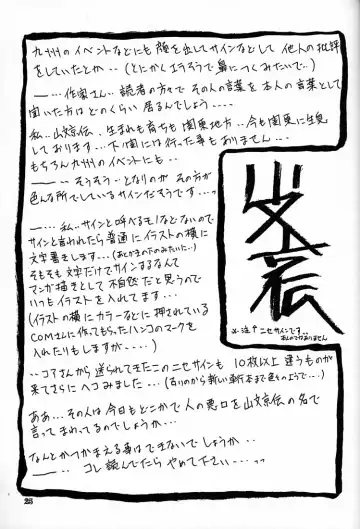 九州のイベントなどにも顔を出してサインなどして 他人の批評
をしていたとか‥(とにかくエラそうで鼻につくみたいで‥)
──‥作家さん‥読者の方々で その人の言葉を 本人の言葉として
聞いた方は どのくらい 居るんでしょう‥‥
私‥山文京伝、生まれも育ちも 関東地方‥今も関東に生息
しております‥下関には行った事もありません‥‥
もちろん九州のイベントにも‥
──‥そうそう‥となりのが その方が
色んな所でしているサインだそうです‥‥っ
‥‥私‥サインと呼べるモノなどないので
サインと言われたら普通にイラストの横に
文字書きします‥‥(あとがきの下のみたいに‥)
そもそも文字だけでサインするなんて
マンガ描きとして不自然だと思うので
いつもイラストを入れてます‥‥
(イラストの横にカラーなどに押されている
COMさんに作ってもらったハンコのマークを
入れたりもしますが‥‥)
‥コアさんから送られてきたこのニセサインも 10枚以上 違うものが
来てさらにヘコみました‥‥(古いのから新しい単行本まで色々のようで‥‥)
ああ‥その人は今日もどこかで人の悪口を山文京伝の名で
言ってまわってるのでしょうか‥‥
なんとかつかまえる事はできないでしょうか‥
──‥ コレ読んでたら やめて下さい‥‥っ
山文京伝
※注↑ニセサインです‥
私のではありません
25